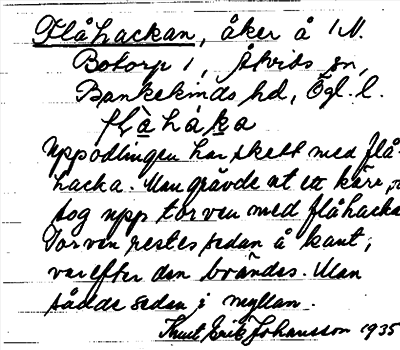 Flåhackan, åker å 1/1 N.
Botorp 1, Åtvids sn,
Bankekinds hd, Ögl. l.
flåhaka
Uppodlingen har skett med flå-
hacka. Man grävde ut ett kärr,
tog upp torven med flåhacka
Torven restes sedan å kant,
varefter den brändes. Man
sådde sedan i myllan.
Knut Erik Johansson 1935